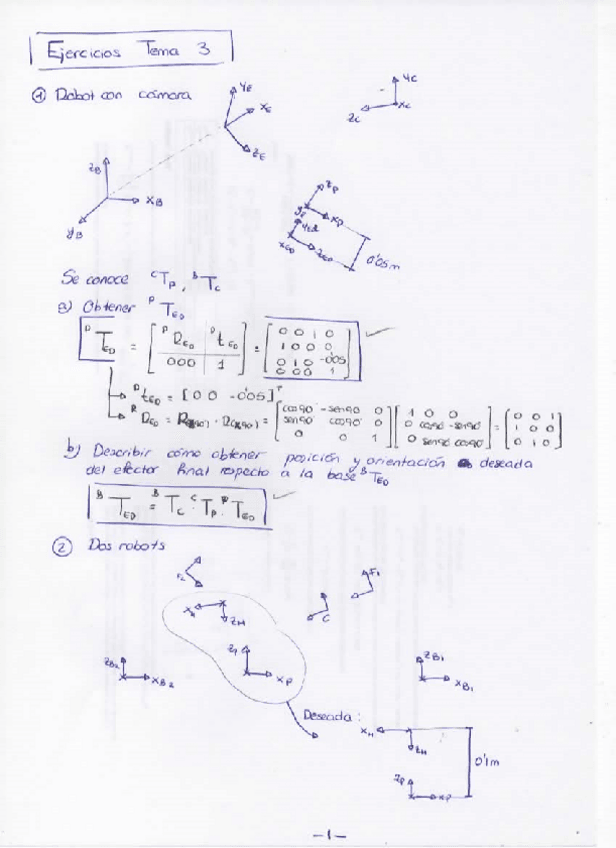 Ejercicios Tema 3
① Robot con cámara
Y_E
X_E
Z_E
Y_C
X_C
Z_C
Z_B
X_B
Y_B
Z_P
X_P
0'05m
Se conoce ᶜT_P, ᴮT_C
a) Obtener ᴾT_ED
ᴾT_ED = [ ᴾR_ED ᴾt_ED ; 000 1 ] = [ 0 0 1 0 ; 1 0 0 0 ; 0 1 0 -0'05 ; 0 0 0 1 ]
ᴾt_ED = [0 0 -0'05]ᵀ
= [ cos90 -sen90 0 ; sen90 cos90 0 ; 0 0 1 ] [ 1 0 0 ; 0 cos90 -sen90 ; 0 sen90 cos90 ] = [ 0 0 1 ; 1 0 0 ; 0 1 0 ]
b) Describir cómo obtener posición y orientación deseada
del efector final respecto a la base ᴮT_ED
ᴮT_ED = ᴮT_C · ᶜT_P · ᴾT_ED
② Dos robots
F1
C
Z_H
X_P
Z_B2
X_B2
Z_B1
X_B1
Deseada:
X_H
Z_H
0'1m
Z_P
X_P
-1-